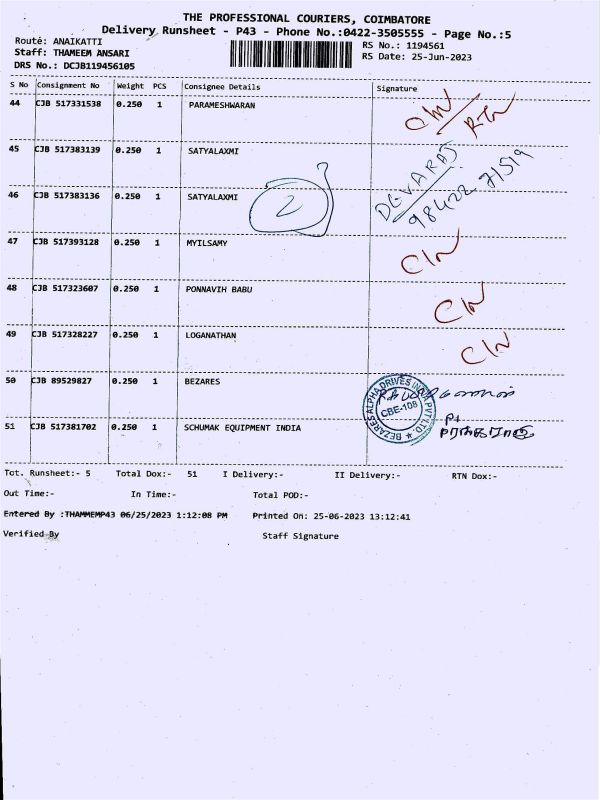 THE PROFESSIONAL COURIERS, COIMBATORE
Delivery Runsheet - P43 - Phone No.:0422-3505555 - Page No.:5
Route: ANAIKATTI
RS No.: 1194561
Staff: THAMEEM ANSARI
RS Date: 25-Jun-2023
DRS No.: DCJB119456105
S No Consignment No Weight PCS Consignee Details Signature
44 CJB 517331538 0.250 1 PARAMESHWARAN
RTN
45 CJB 517383139 0.250 1 SATYALAXMI
DEVARAJ
46 CJB 517383136 0.250 1 SATYALAXMI 2 98422 71519
47 CJB 517393128 0.250 1 MYILSAMY
48 CJB 517323607 0.250 1 PONNAVIH BABU
49 CJB 517328227 0.250 1 LOGANATHAN
50 CJB 89529827 0.250 1 BEZARES
BEZARES ALPHA DRIVES INDIA PVT LTD.
CBE-108
51 CJB 517381702 0.250 1 SCHUMAK EQUIPMENT INDIA
Tot. Runsheet:- 5 Total Dox:- 51 I Delivery:- II Delivery:- RTN Dox:-
Out Time:- In Time:- Total POD:-
Entered By :THAMMEMP43 06/25/2023 1:12:08 PM Printed On: 25-06-2023 13:12:41
Verified By Staff Signature